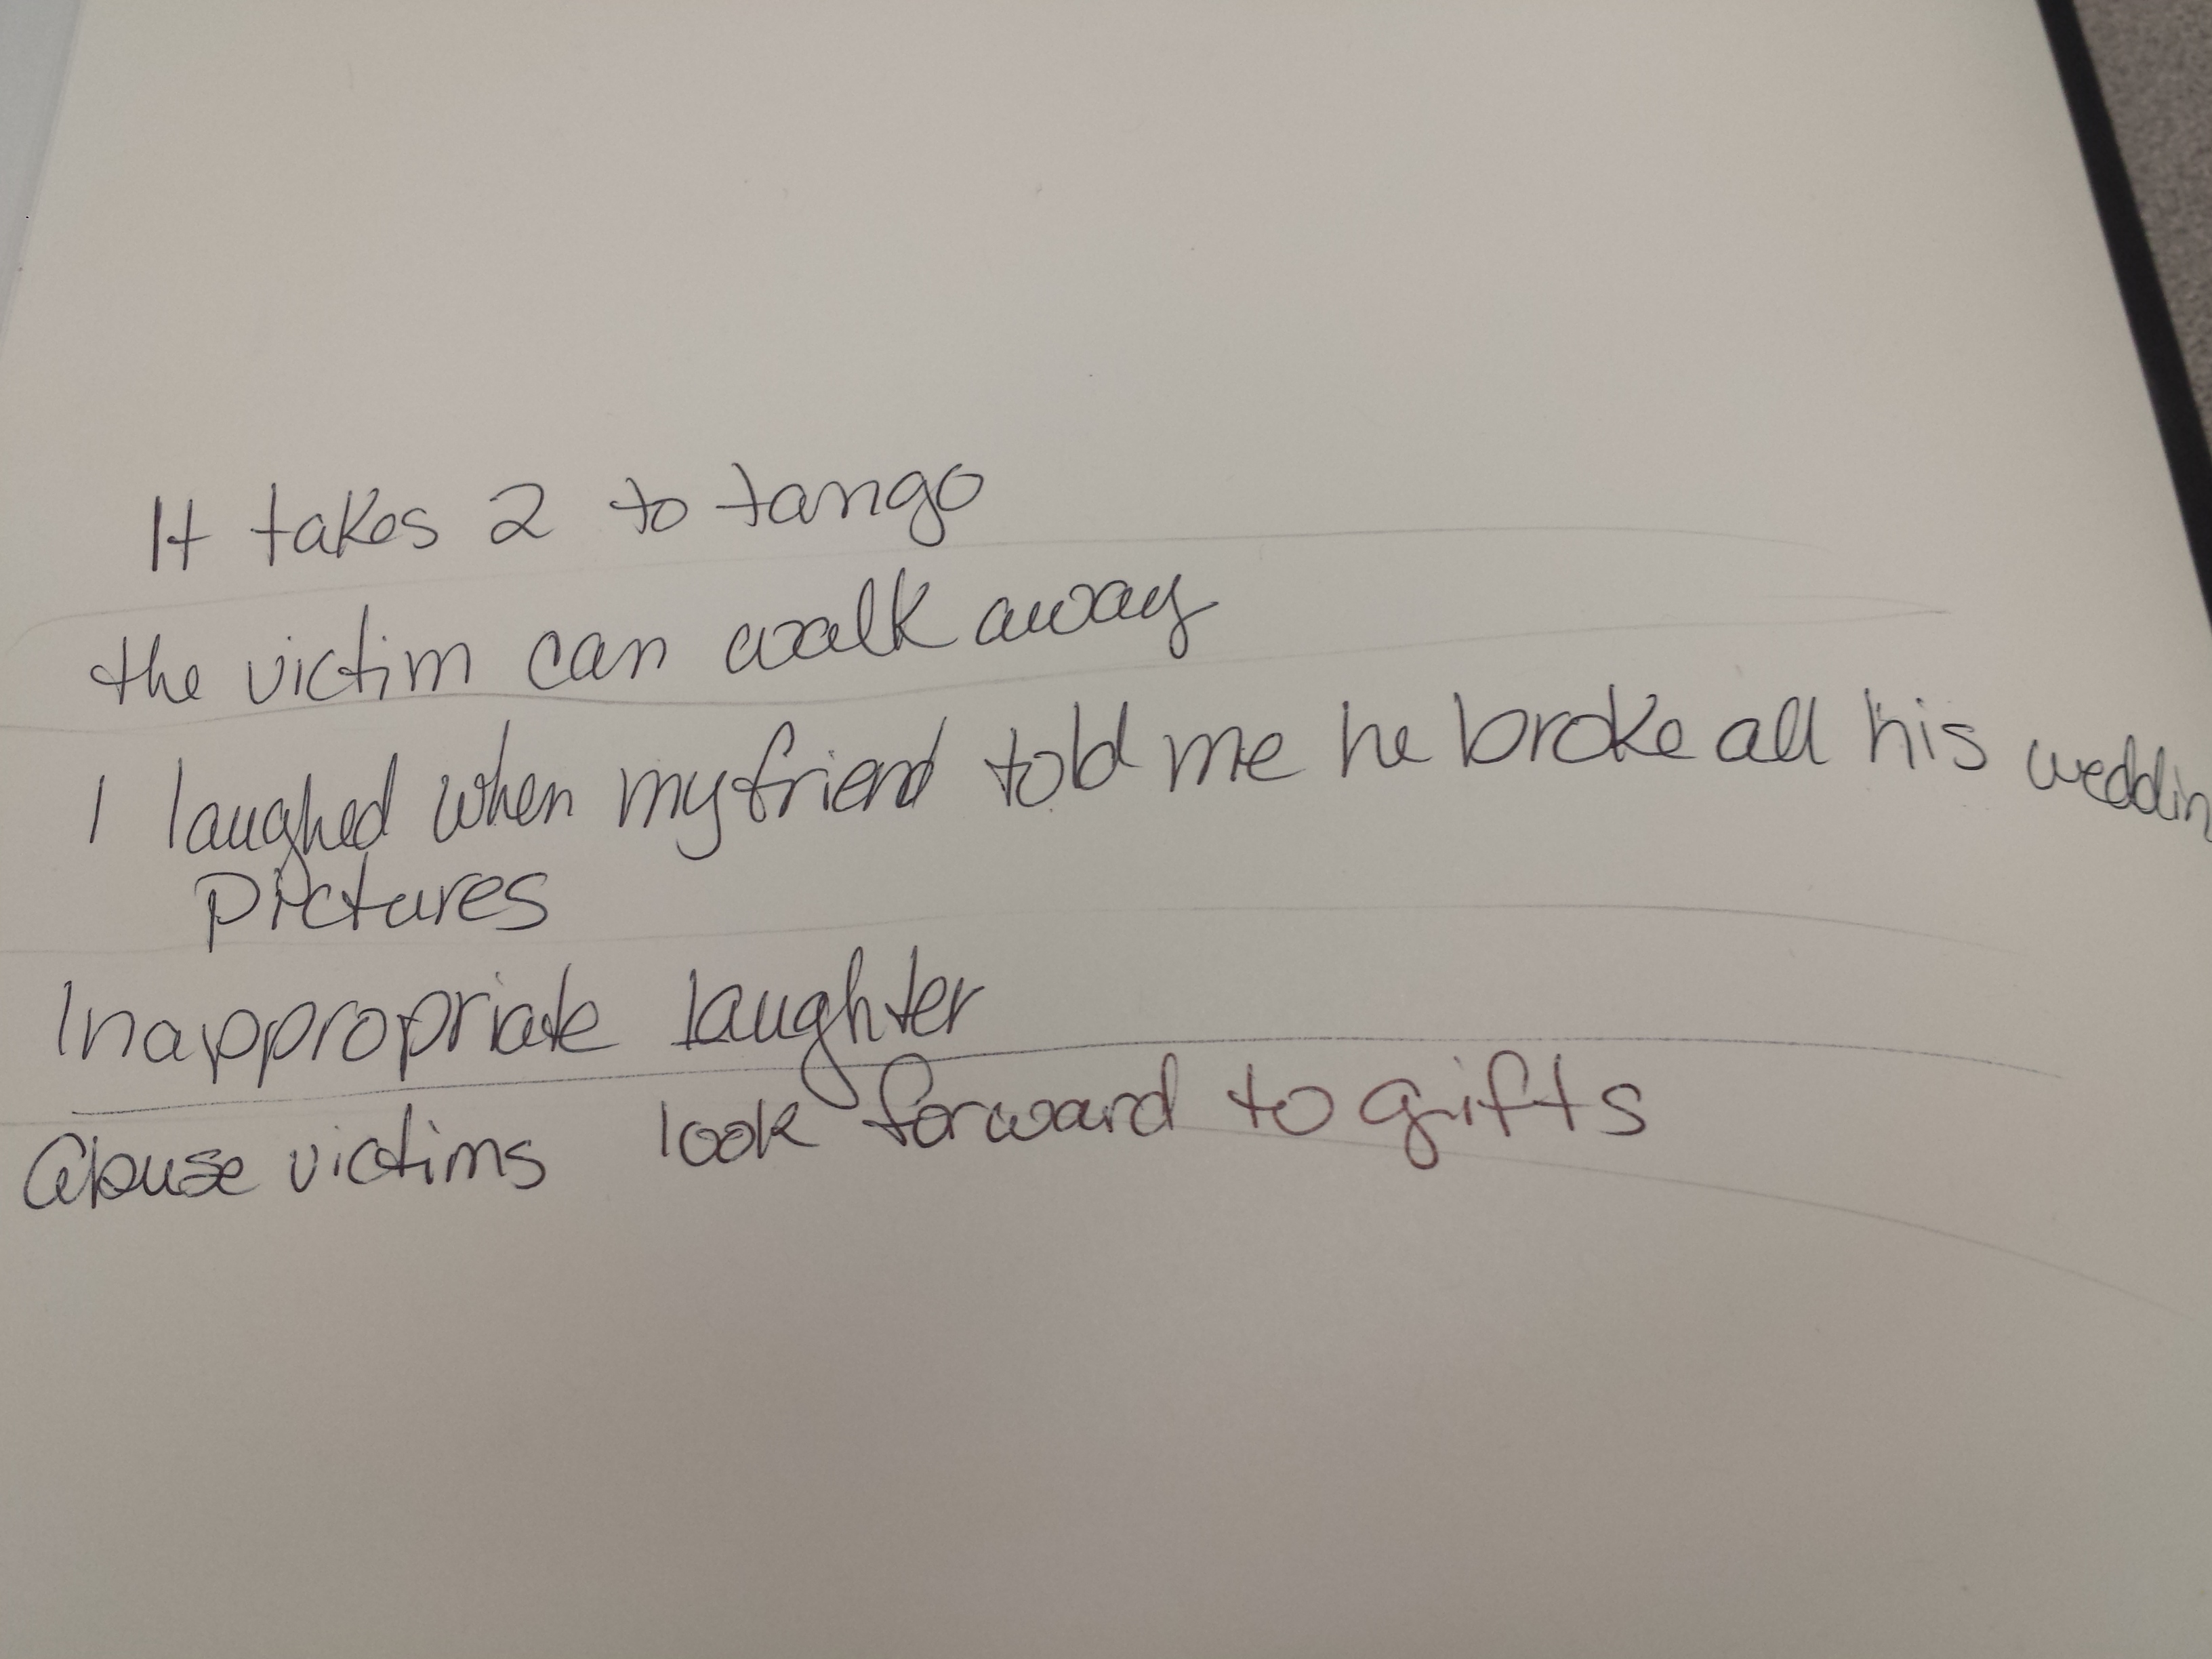 It takes 2 to tango
the victim can walk away
I laughed when my friend told me he broke all his weddin
pictures
Inappropriate laughter
Abuse victims look forward to gifts